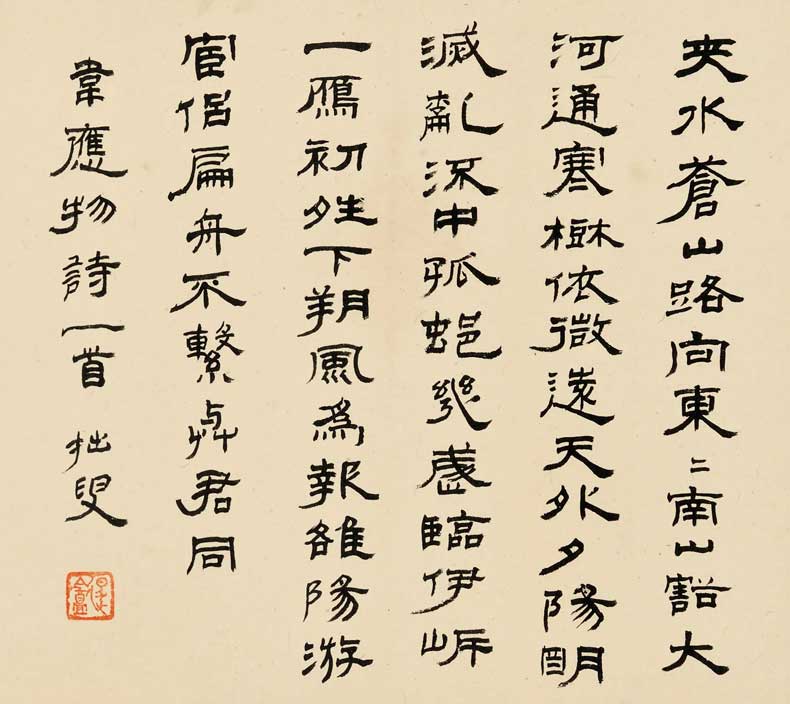 夾水蒼山路向東二南山豁大
河通寒樹依微遠天外夕陽朙
滅亂流中孤邨幾歲臨伊岸
一鴈初夝下朔風為報雒陽游
宦侶扁舟不繫與君同
韋應物詩一首 拙叟